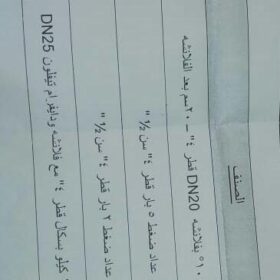 الصنف
٠١" بفلانشه DN20 قطر ٤" - ٢٠سم بعد الفلانشه
عداد ضغط ٥ بار قطر ٤" سن ½ "
عداد ضغط ٢ بار قطر ٤" سن ½ "
كيلو بسكال قطر ٤" مع فلانشه ودايفرام تيفلون DN25